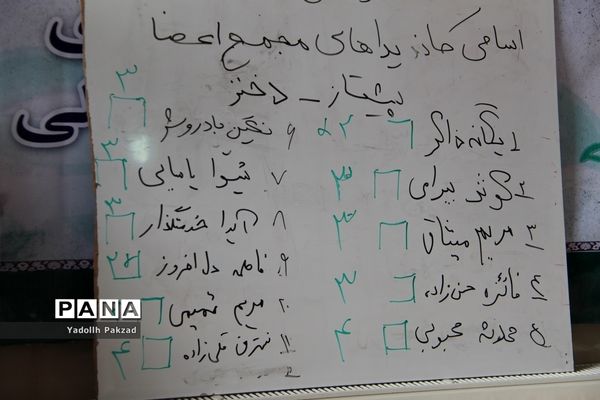 اسامی کاندیداهای مجمع اعضا
پیشتاز - دختر
۱ یگانه ذاکر
۲ کوثر بیرامی
۳ مریم میثاق
۴ فائزه حسن‌زاده ۳
۵ محدثه محبوبی ۴
۶ نگین بادروش ۳
۷ شیوا بابایی ۳
۸ آیدا خدمتگذار ۳
۹ فاطمه دل افروز
۱۰ مریم نعیمی
۱۱ قلی‌زاده ۴
PANA
Yadollh Pakzad